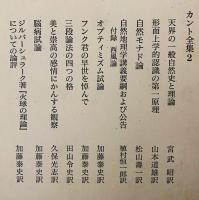 カント全集2
天界の一般自然史と理論 宮武 昭訳
形而上学的認識の第一原理 山本道雄訳
自然モナド論 松山壽一訳
自然地理学講義要綱および公告
付録 西風論 植村恒一郎訳
オプティミズム試論 加藤泰史訳
フンク君の早世を悼んで 加藤泰史訳
三段論法の四つの格 田山令史訳
美と崇高の感情にかんする観察 久保光志訳
脳病試論 加藤泰史訳
ジルバーシュラーク著『火球の理論』
についての論評 加藤泰史訳